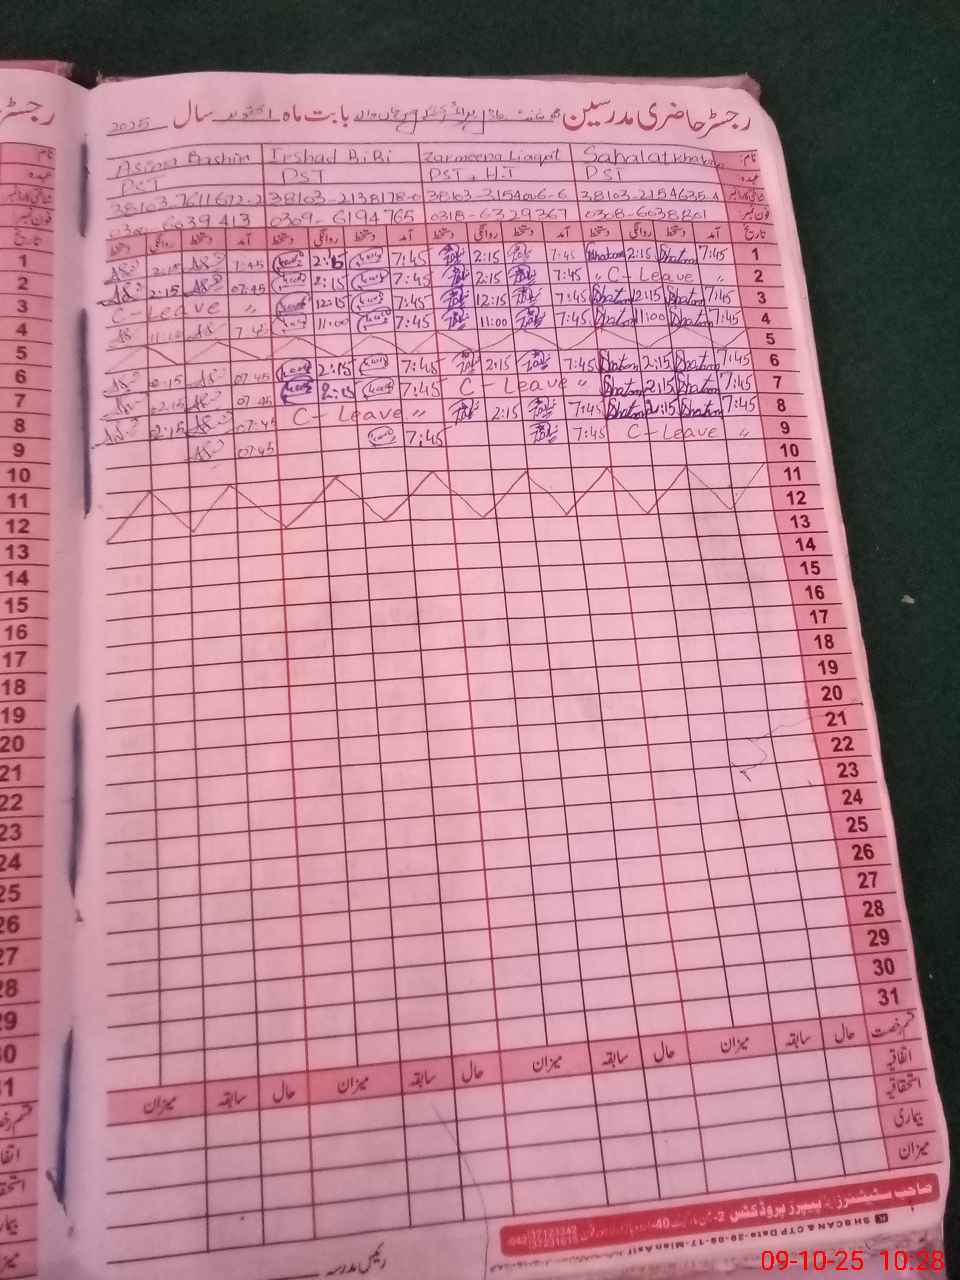 رجسٹر حاضری مدرسین بابت ماہ اکتوبر سال 2025
نام Sahalat Khatoon Zarmeena Liaqat Irshad Bibi Asima Bashir
عہدہ PST PST, H.T PST PST
شناختی کارڈ نمبر 38103-2154635-4 38103-3154006-6 38103-2138178-0 38103-7611672-2
فون نمبر 0308-6038201 0318-6329367 0309-6194765 6039413
تاریخ آمد دستخط روانگی دستخط آمد دستخط روانگی دستخط آمد دستخط روانگی دستخط آمد دستخط روانگی دستخط
1 7:45 Khatoon 2:15 Khatoon 7:45 2:15 7:45 2:15 7:45 2:15 1
2 " C-Leave " 7:45 2:15 7:45 2:15 07:45 2:15 2
3 7:45 Khatoon 12:15 Khatoon 7:45 12:15 7:45 12:15 " C-Leave 3
4 7:45 Khatoon 11:00 Khatoon 7:45 11:00 7:45 11:00 7:45 11:00 4
5 5
6 7:45 Khatoon 2:15 Khatoon 7:45 2:15 7:45 2:15 07:45 02:15 6
7 7:45 Khatoon 2:15 Khatoon " C-Leave 7:45 2:15 07:45 02:15 7
8 7:45 Khatoon 2:15 Khatoon 7:45 2:15 " C-Leave 07:45 02:15 8
9 " C-Leave 7:45 7:45 07:45 9
10 10
11 11
12 12
13 13
14 14
15 15
16 16
17 17
18 18
19 19
20 20
21 21
22 22
23 23
24 24
25 25
26 26
27 27
28 28
29 29
30 30
31 31
قسم رخصت حال سابقہ میزان حال سابقہ میزان حال سابقہ میزان حال سابقہ میزان
اتفاقیہ
استحقاقیہ
بیماری
میزان
صاحب سٹیشنرز اینڈ پیپرز پروڈکٹس
رئیس مدرسہ
09-10-25 10:28